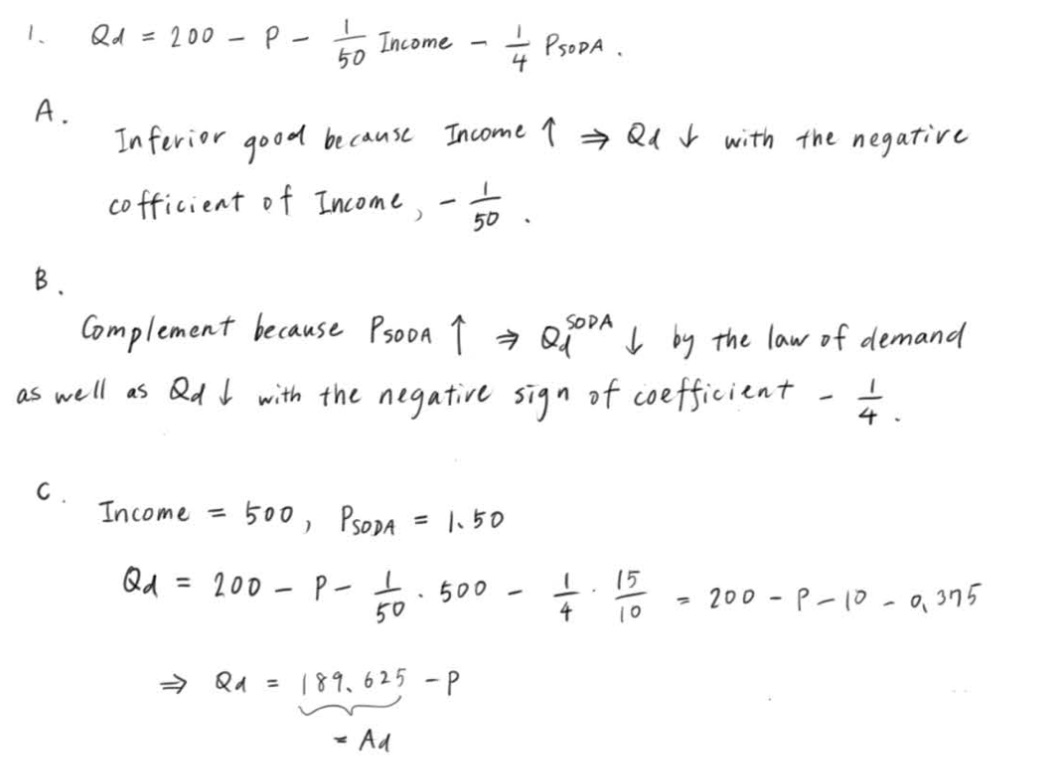 1. Qd = 200 - P - 1/50 Income - 1/4 PSODA .
A.
Inferior good because Income ↑ ⇒ Qd ↓ with the negative
cofficient of Income, - 1/50 .
B.
Complement because PSODA ↑ ⇒ Qd^SODA ↓ by the law of demand
as well as Qd ↓ with the negative sign of coefficient - 1/4 .
C.
Income = 500, PSODA = 1.50
Qd = 200 - P - 1/50 · 500 - 1/4 · 15/10 = 200 - P - 10 - 0.375
⇒ Qd = 189.625 - P
= Ad